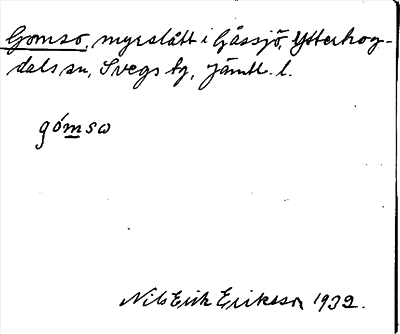 Gomso, myrslått i Gåssjö, Ytterhog-
dals sn, Svegs tg, Jämtl. l.
gómsω
Nils Erik Eriksson 1932.